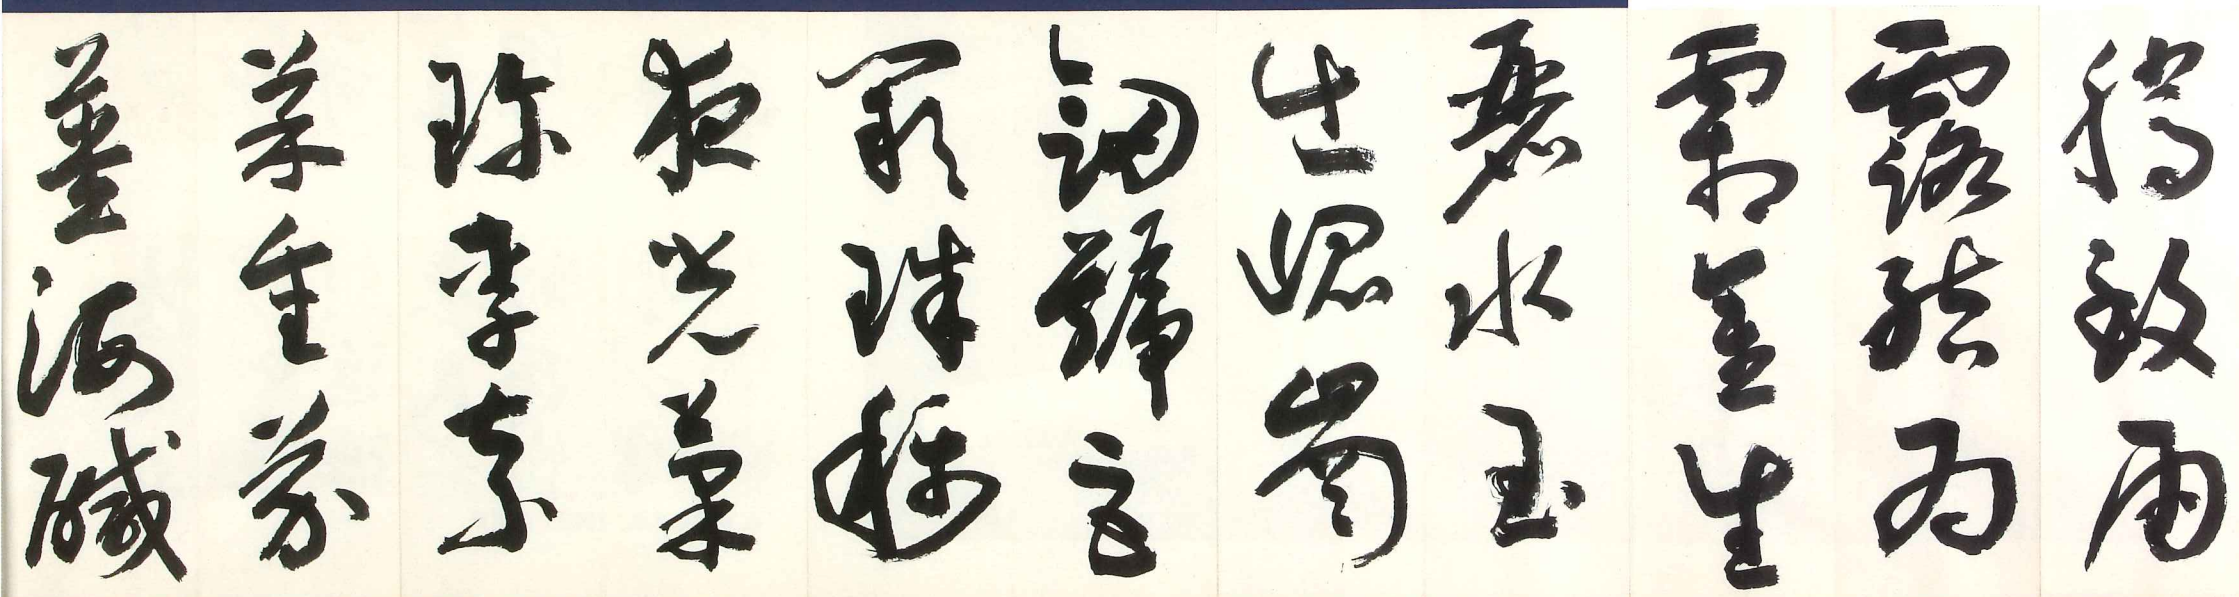 騰致雨
露結為
霜金生
麗水玉
出崐崗
劍號巨
闕珠稱
夜光菓
珍李柰
菜重芥
薑海醎